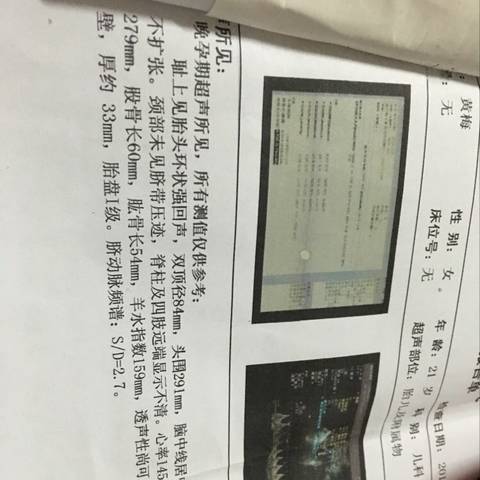 检查日期：201
黄梅 性 别：女。 年 龄：21 岁 科 别：儿科
号：无 床位号：无 超声部位：胎儿及附属物
所见：
晚孕期超声所见，所有测值仅供参考：
耻上见胎头环状强回声，双顶径84mm，头围291mm，脑中线居
不扩张。颈部未见脐带压迹，脊柱及四肢远端显示不清。心率145
279mm，股骨长60mm，肱骨长54mm，羊水指数159mm，透声性尚可
壁，厚约 33mm，胎盘I级。脐动脉频谱：S/D=2.7。